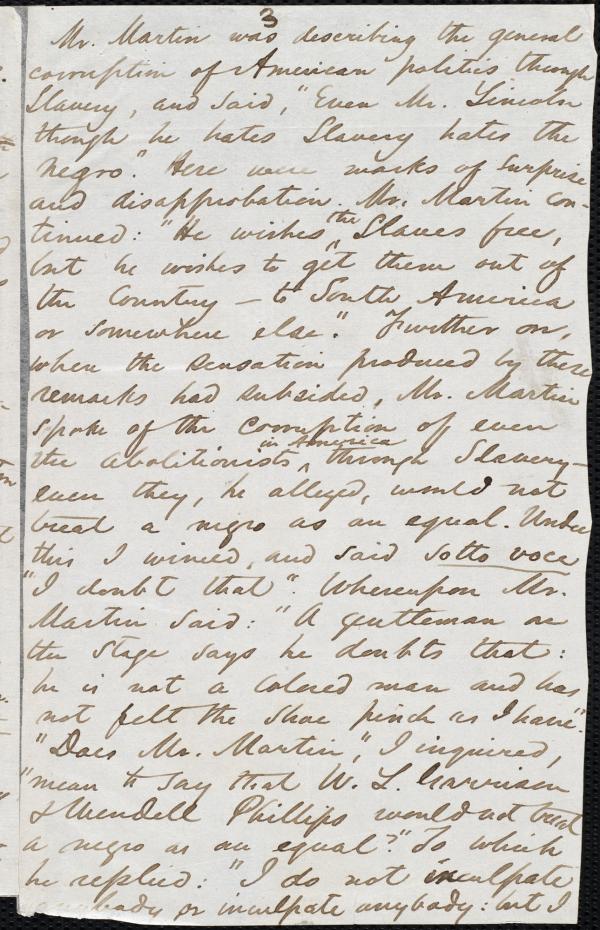 3
Mr. Martin was describing the general
corruption of American politics through
Slavery, and said, "Even Mr. Lincoln
though he hates Slavery hates the
negro." Here were marks of surprise
and disapprobation. Mr. Martin con-
tinued: "He wishes the Slaves free,
but he wishes to get them out of
the Country — to South America
or somewhere else." Further on,
when the sensation produced by these
remarks had subsided, Mr. Martin
spoke of the corruption of even
the abolitionists in America, through Slavery—
even they, he alleged, would not
treat a negro as an equal. Under
this I winced, and said sotto voce
"I doubt that". Whereupon Mr.
Martin said: "A gentleman on
the stage says he doubts that:
he is not a colored man and has
not felt the shoe pinch as I have".
"Does Mr. Martin," I inquired,
"mean to say that W. L. Garrison
& Wendell Phillips would not treat
a negro as an equal?" To which
he replied: "I do not inculpate
anybody or inculpate anybody: but I